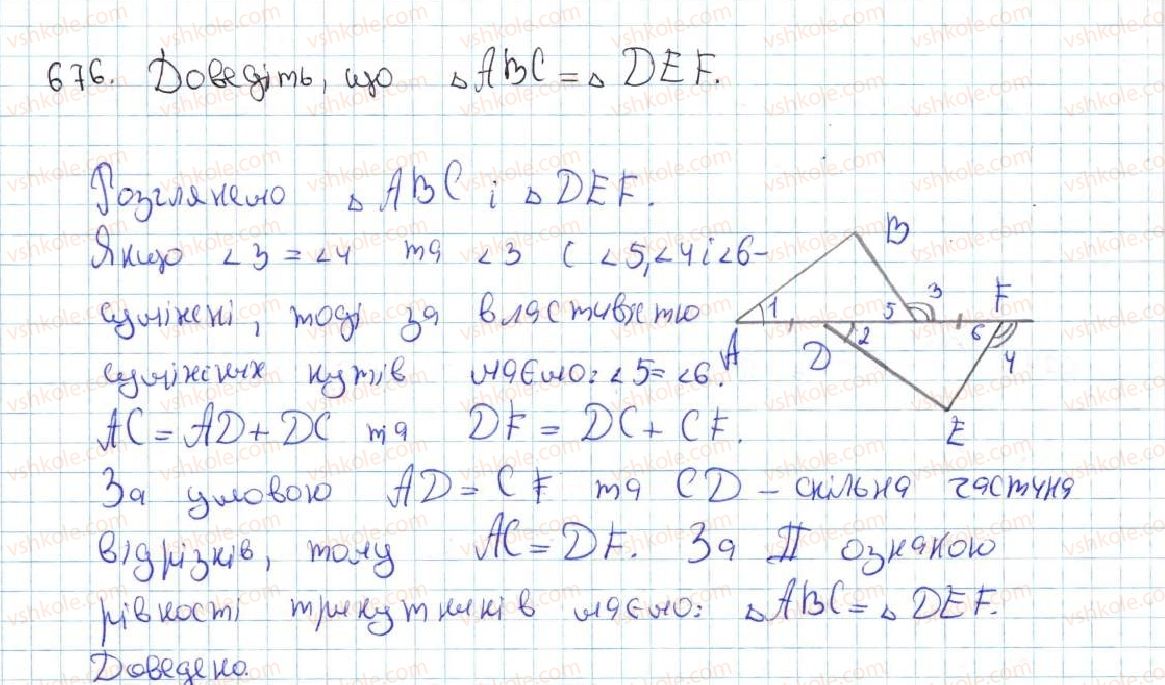 676. Доведіть, що △ABC = △DEF.
Розглянемо △ABC і △DEF.
Якщо ∠3 = ∠4 та ∠3 і ∠5, ∠4 і ∠6 –
суміжні, тоді за властивістю
суміжних кутів маємо: ∠5 = ∠6.
AC = AD + DC та DF = DC + CF.
За умовою AD = CF та CD – спільна частина
відрізків, тому AC = DF. За II ознакою
рівності трикутників маємо: △ABC = △DEF.
Доведено.
B
1 5 3 F
A D 2 6 4
E
vshkole.com